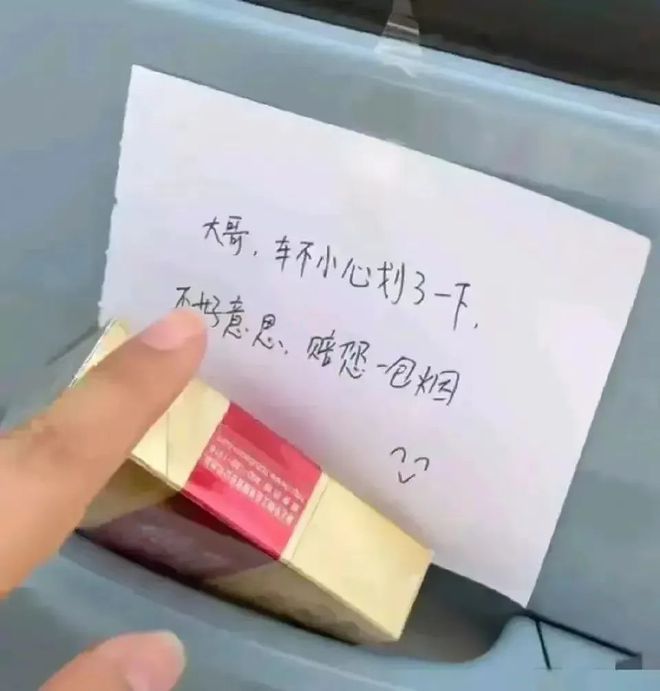 大哥，车不小心划了一下，
不好意思，赔您一包烟